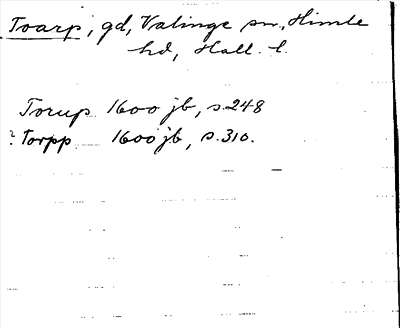 Toarp, gd, Valinge sn, Himle
hd, Hall. l.
Torup 1600 jb, s.248
? Torpp 1600 jb, s.310.